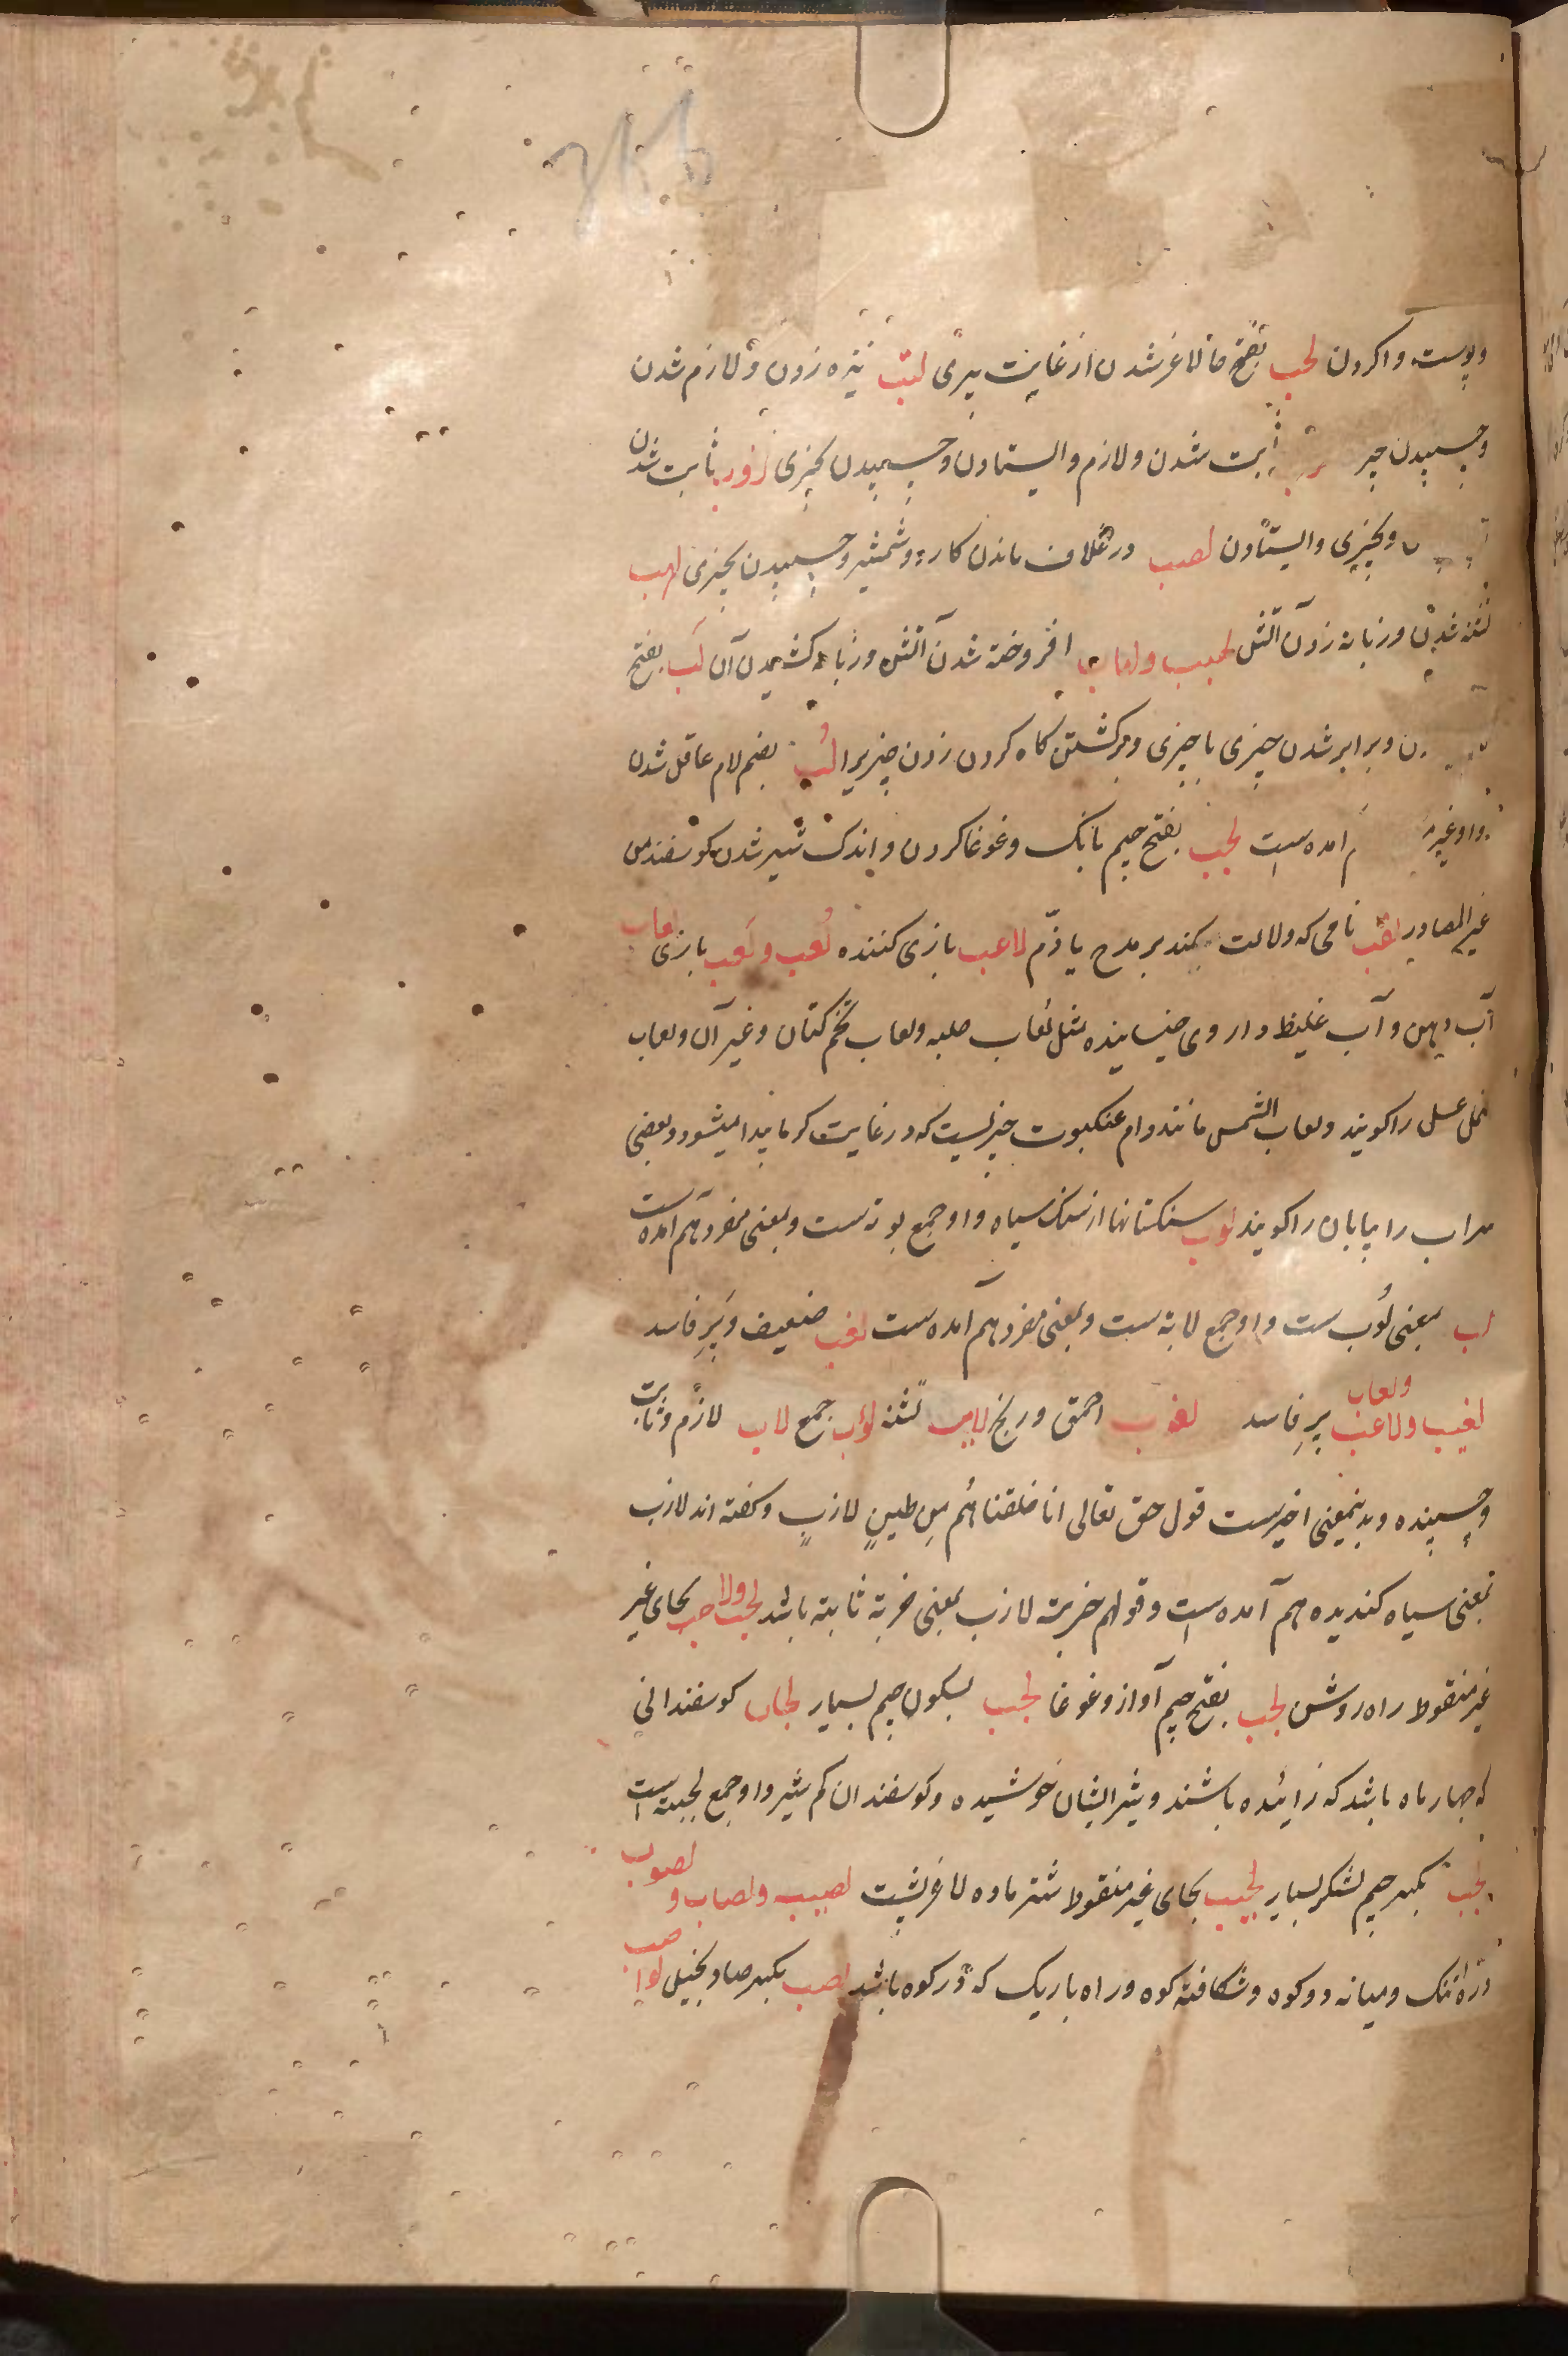 وپوست واکردن لحب بفتح حا لاغر شدن از غایت پیری لتب نیزه زدن و لازم شدن
وچسپیدن ثابت شدن و لازم و ایستادن و چسپیدن بچیزی لزوب ثابت شدن
وبچیزی و ایستادن لصب در غلاف ماندن کارد و شمشیر و چسپیدن بچیزی لهب
تشنه شدن و زبانه زدن آتش لهیب ولهاب افروخته شدن آتش و زبانه کشیدن آن لب بفتح
وبرابر شدن چیزی با چیزی و برگشتن کاه کردن زدن چیزیرا لب بضم لام عاقل شدن
آمده است لجب بفتح جیم بانک و غوغا کردن و اندک شیر شدن کوسفند من
غیر المصادر لقب نامی که دلالت کند بر مدح یا ذم لاعب بازی کننده لعب و لعب بازی لعاب
آب دهن و آب غلیظ داروی خیسانیده مثل لعاب حلبه ولعاب تخم کتان و غیر آن ولعاب
نحل عسل را کویند ولعاب الشمس مانند دام عنکبوت چیزیست که در غایت کرما پیدا میشود و بعضی
سراب را بیابان را کویند لوب سنکستانها از سنک سیاه و او جمع لوبه است و بمعنی مفرد هم آمده است
لاب بمعنی لوب ست و او جمع لابه ست و بمعنی مفرد هم آمده ست لغب ضعیف و پر فاسد
لغیب ولاغب ولغاب پر فاسد لغوب احمق و رنج لایب تشنه لوب جمع لایب لازم و ثابت
وچسپنده و بدینمعنی اخیرست قول حق تعالی انا خلقناهم من طین لازب و کفته اند لازب
بمعنی سیاه کندیده هم آمده است و قولهم ضربة لازب بمعنی ضربة ثابته باشد لحب ولاحب بحای غیر
غیر منقوط راه روشن لجب بفتح جیم آواز و غوغا لجب بسکون جیم بسیار لجاب کوسفندانی
که چهار ماه باشد که زائیده باشند و شیر ایشان خوشیده و کوسفندان کم شیر و او جمع لجبه است
لجب بکسر جیم لشکر بسیار لحیب بحای غیر منقوط شتر ماده لاغر پشت لصیب ولصاب و لصوب
درۀ تنک و میانه دو کوه و شکافته کوه و راه باریک که در کوه باشد لصب بکسر صاد بخیل لواصب